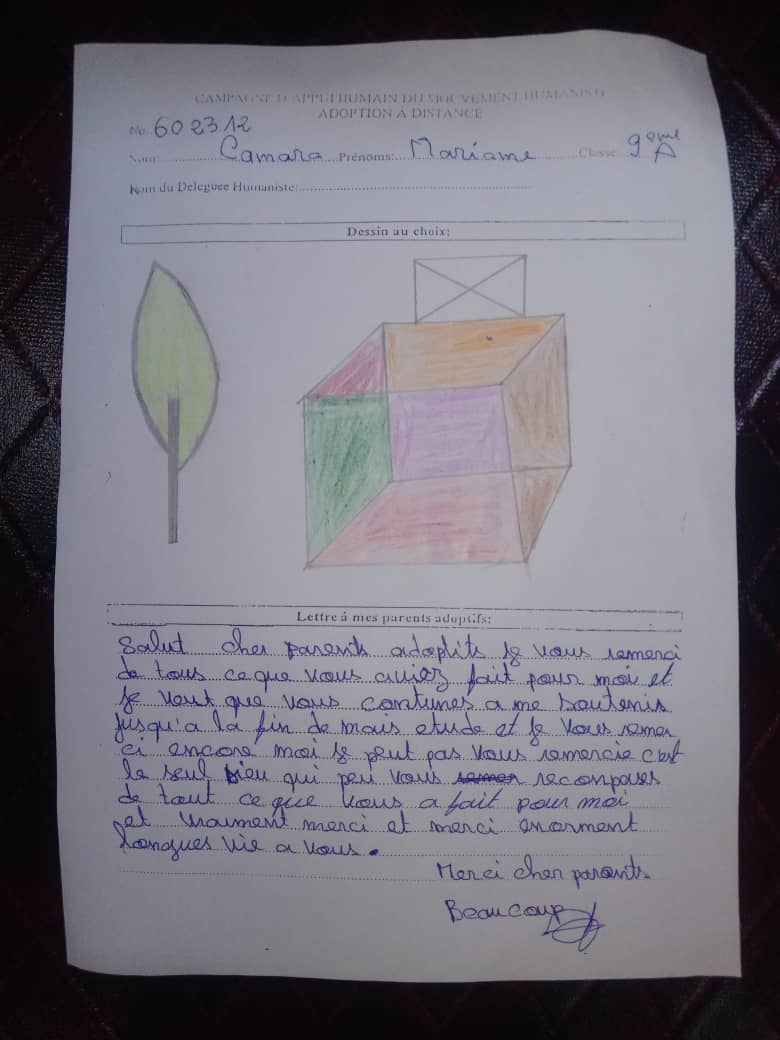 CAMPAGNE D'APPUI HUMAIN DU MOUVEMENT HUMANISTE
ADOPTION À DISTANCE
No: 602312
Nom: Camara Prénoms: Mariame Classe 9ème A
Nom du Deleguee Humaniste:
Dessin au choix:
Lettre á mes parents adoptifs:
Salut cher parents adoptits je vous remerci
de tous ce que vous aviez fait pour moi et
je veut que vous contunes a me soutenis
jusqu'a la fin de mais etude et je vous remer
ci encore moi je peut pas vous remercie c'est
le seul bieu qui peu vous recompases
de tout ce que vous a fait pour moi
et vraument merci et merci enorment
longues vie a vous.
Merci cher parents
Beaucoup